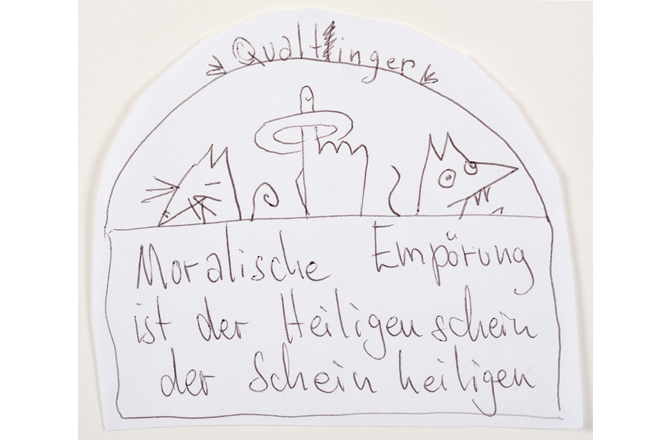 Qualtinger
Moralische Empörung
ist der Heiligenschein
der Scheinheiligen